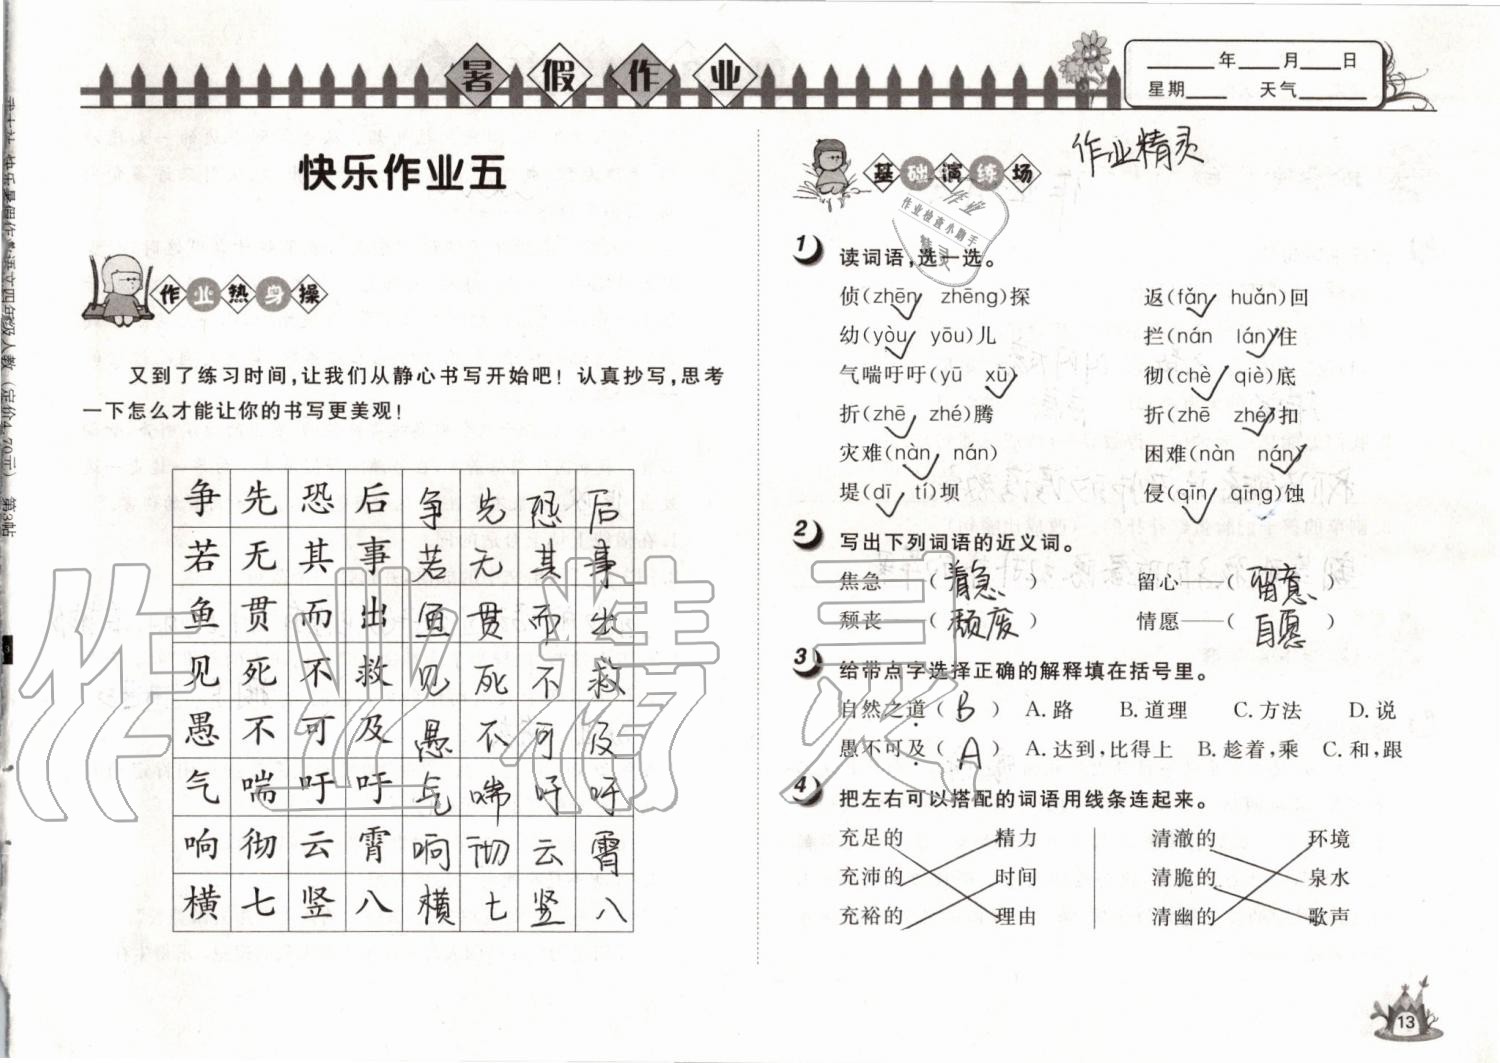 暑假作业
____年____月____日
星期____ 天气____
快乐作业五
作业热身操
又到了练习时间,让我们从静心书写开始吧!认真抄写,思考
一下怎么才能让你的书写更美观!
争先恐后争先恐后
若无其事若无其事
鱼贯而出鱼贯而出
见死不救见死不救
愚不可及愚不可及
气喘吁吁气喘吁吁
响彻云霄响彻云霄
横七竖八横七竖八
作业精灵
基础演练场
作业检查小助手
1 读词语,选一选。
侦(zhēn√ zhēng)探 返(fǎn√ huǎn)回
幼(yòu√ yōu)儿 拦(nán lán√)住
气喘吁吁(yū xū√) 彻(chè√ qiè)底
折(zhē√ zhé)腾 折(zhē zhé√)扣
灾难(nàn√ nán) 困难(nàn nán√)
堤(dī√ tí)坝 侵(qīn√ qīng)蚀
2 写出下列词语的近义词。
焦急——(着急) 留心——(留意)
颓丧——(颓废) 情愿——(自愿)
3 给带点字选择正确的解释填在括号里。
自然之道(B) A.路 B.道理 C.方法 D.说
愚不可及(A) A.达到,比得上 B.趁着,乘 C.和,跟
4 把左右可以搭配的词语用线条连起来。
充足的 精力 清澈的 环境
充沛的 时间 清脆的 泉水
充裕的 理由 清幽的 歌声
13
作业精灵